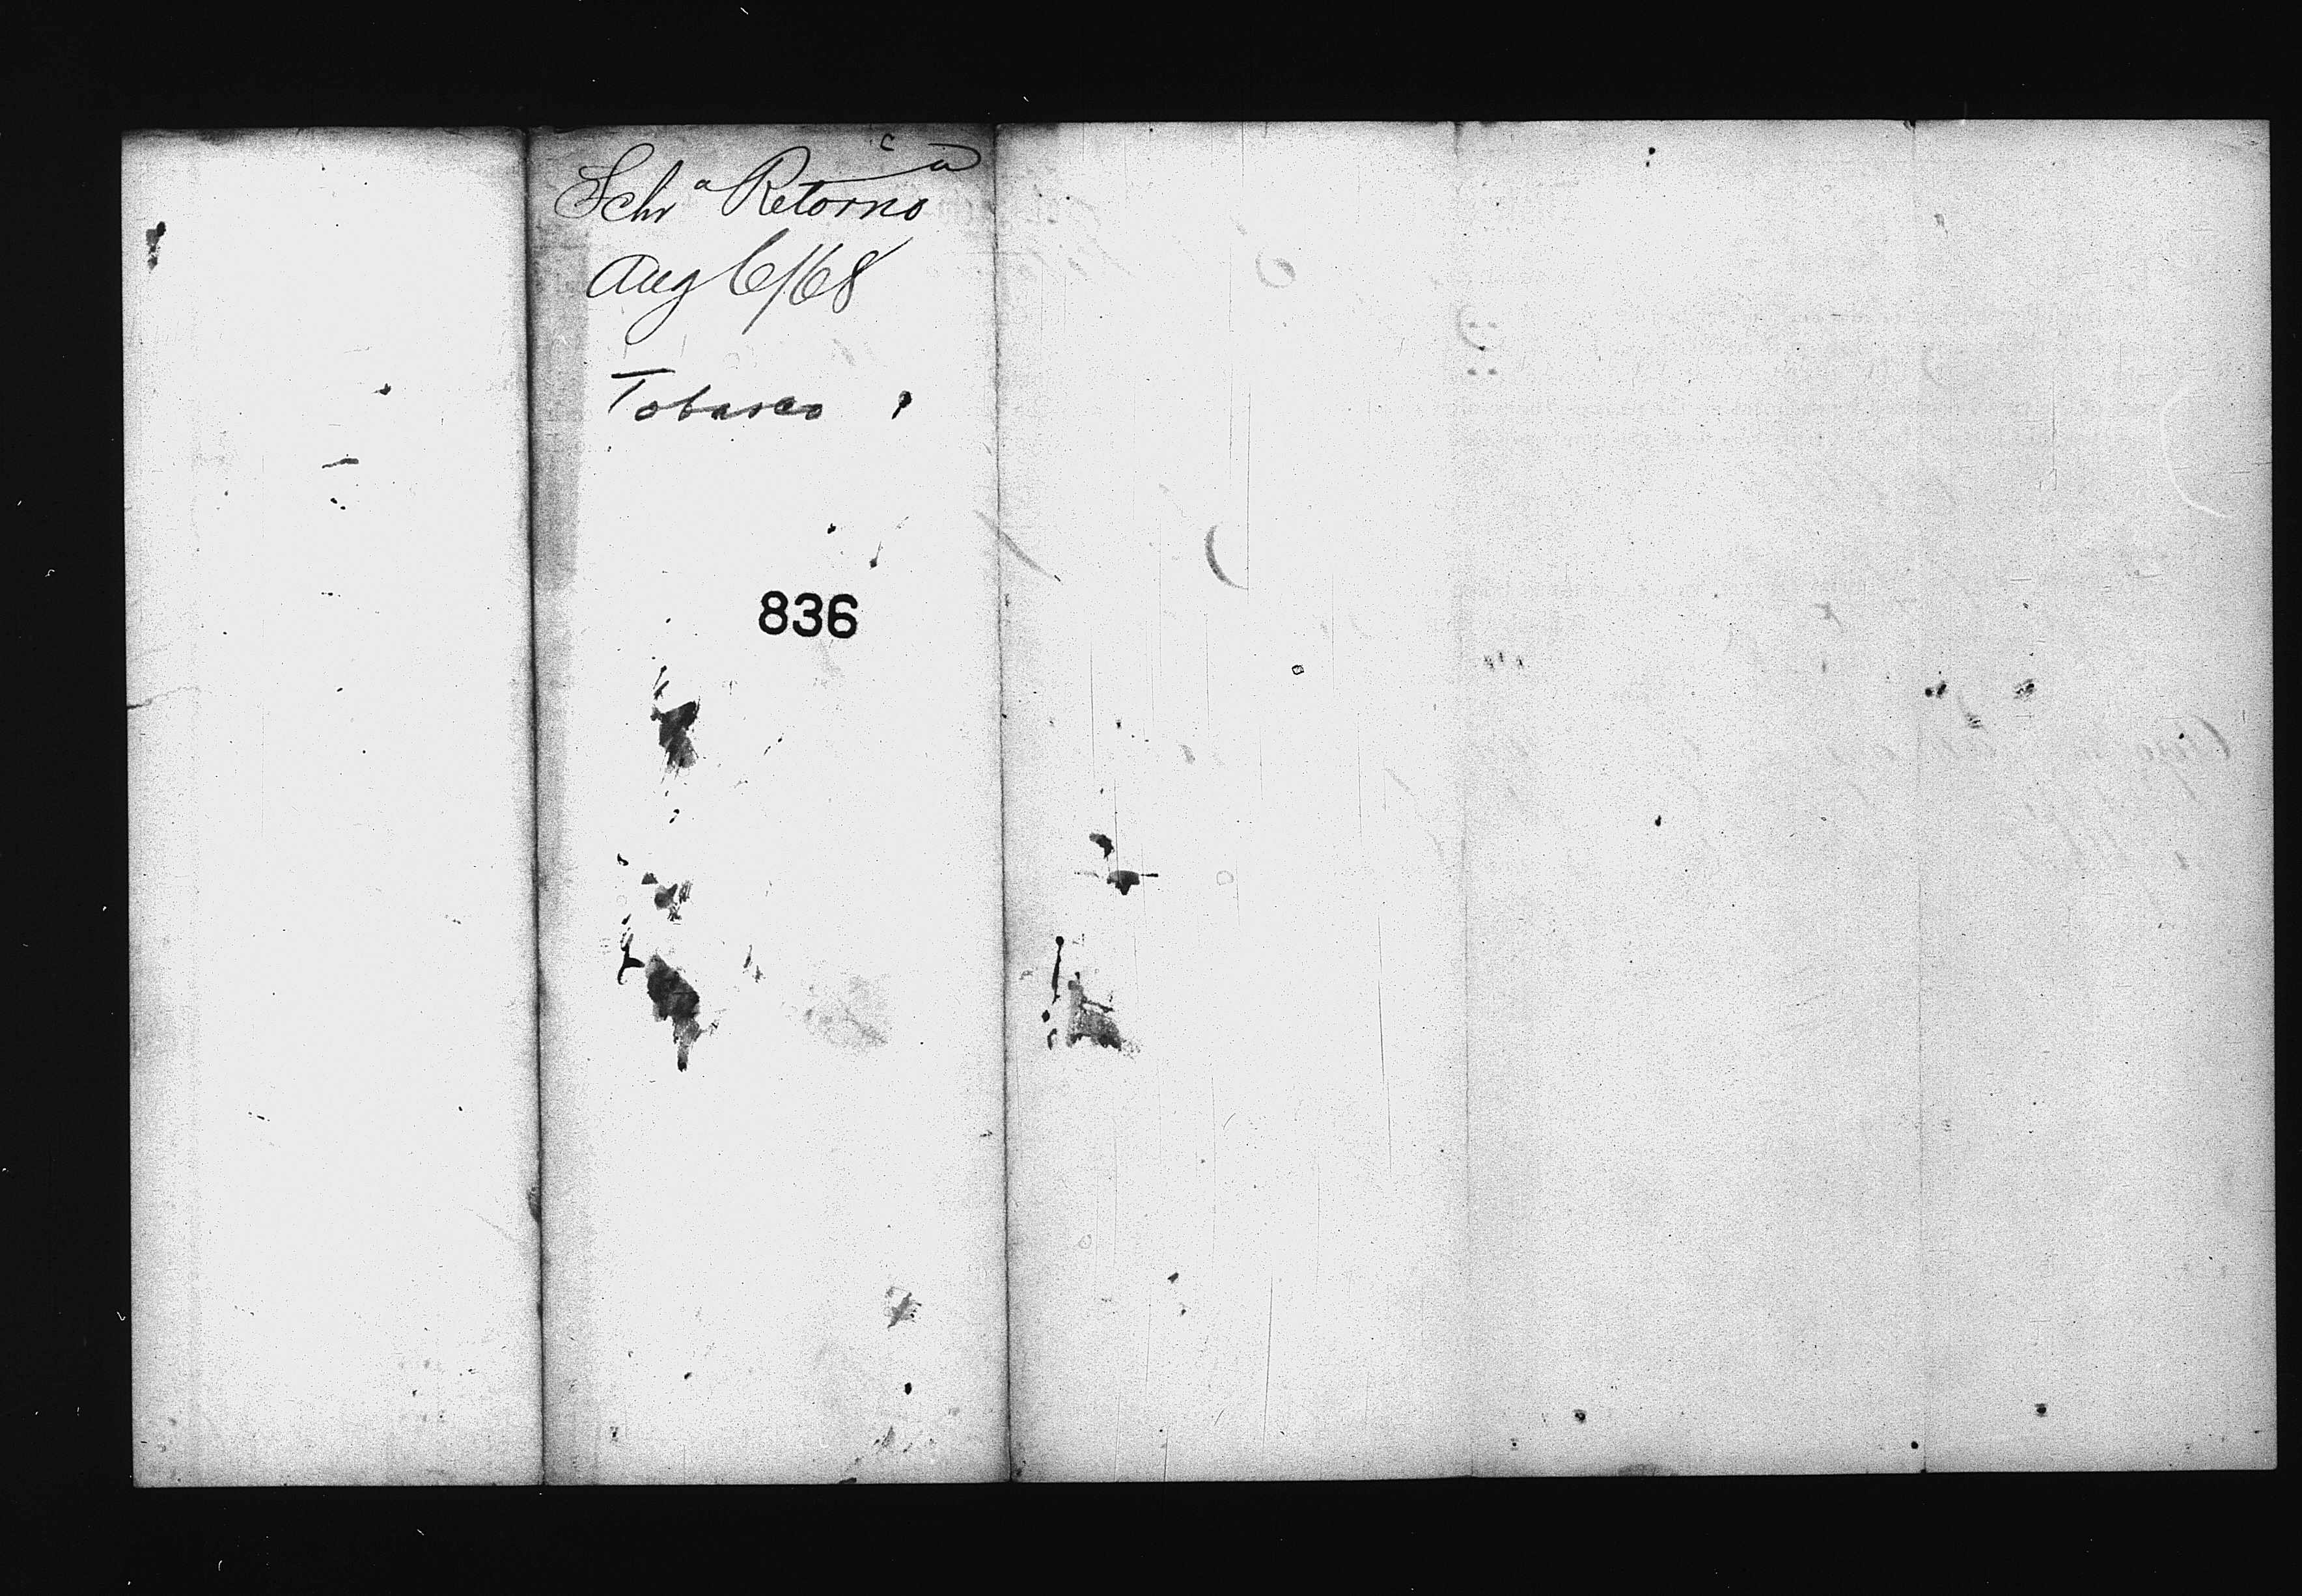 Schr Retorno
Aug 6/68
Tobasco
836